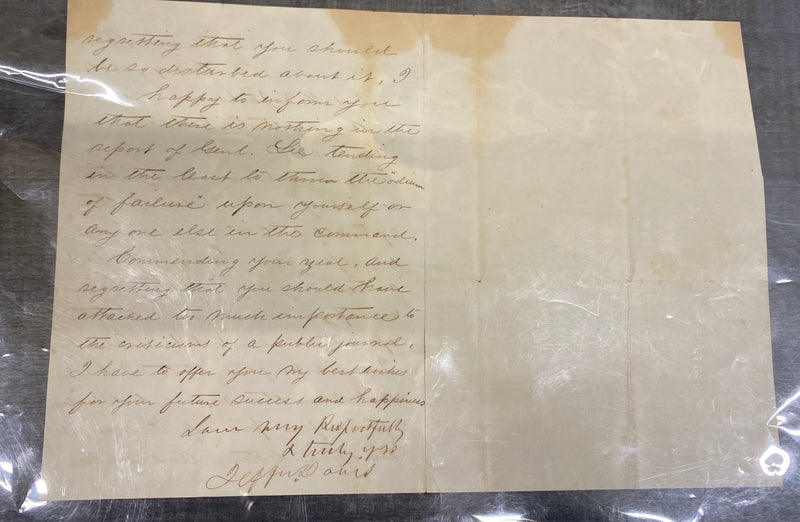 regretting that you should
be so disturbed about it, I
happy to inform you
that there is nothing in the
report of Genl. Lee tending
in the least to throw the "odium
of failure" upon yourself or
any one else in the command.
Commending your zeal, and
regretting that you should have
attached too much importance to
the criticisms of a public journal,
I have to offer you my best wishes
for your future success and happiness
I am very Respectfully
& truly yrs
Jeffn. Davis